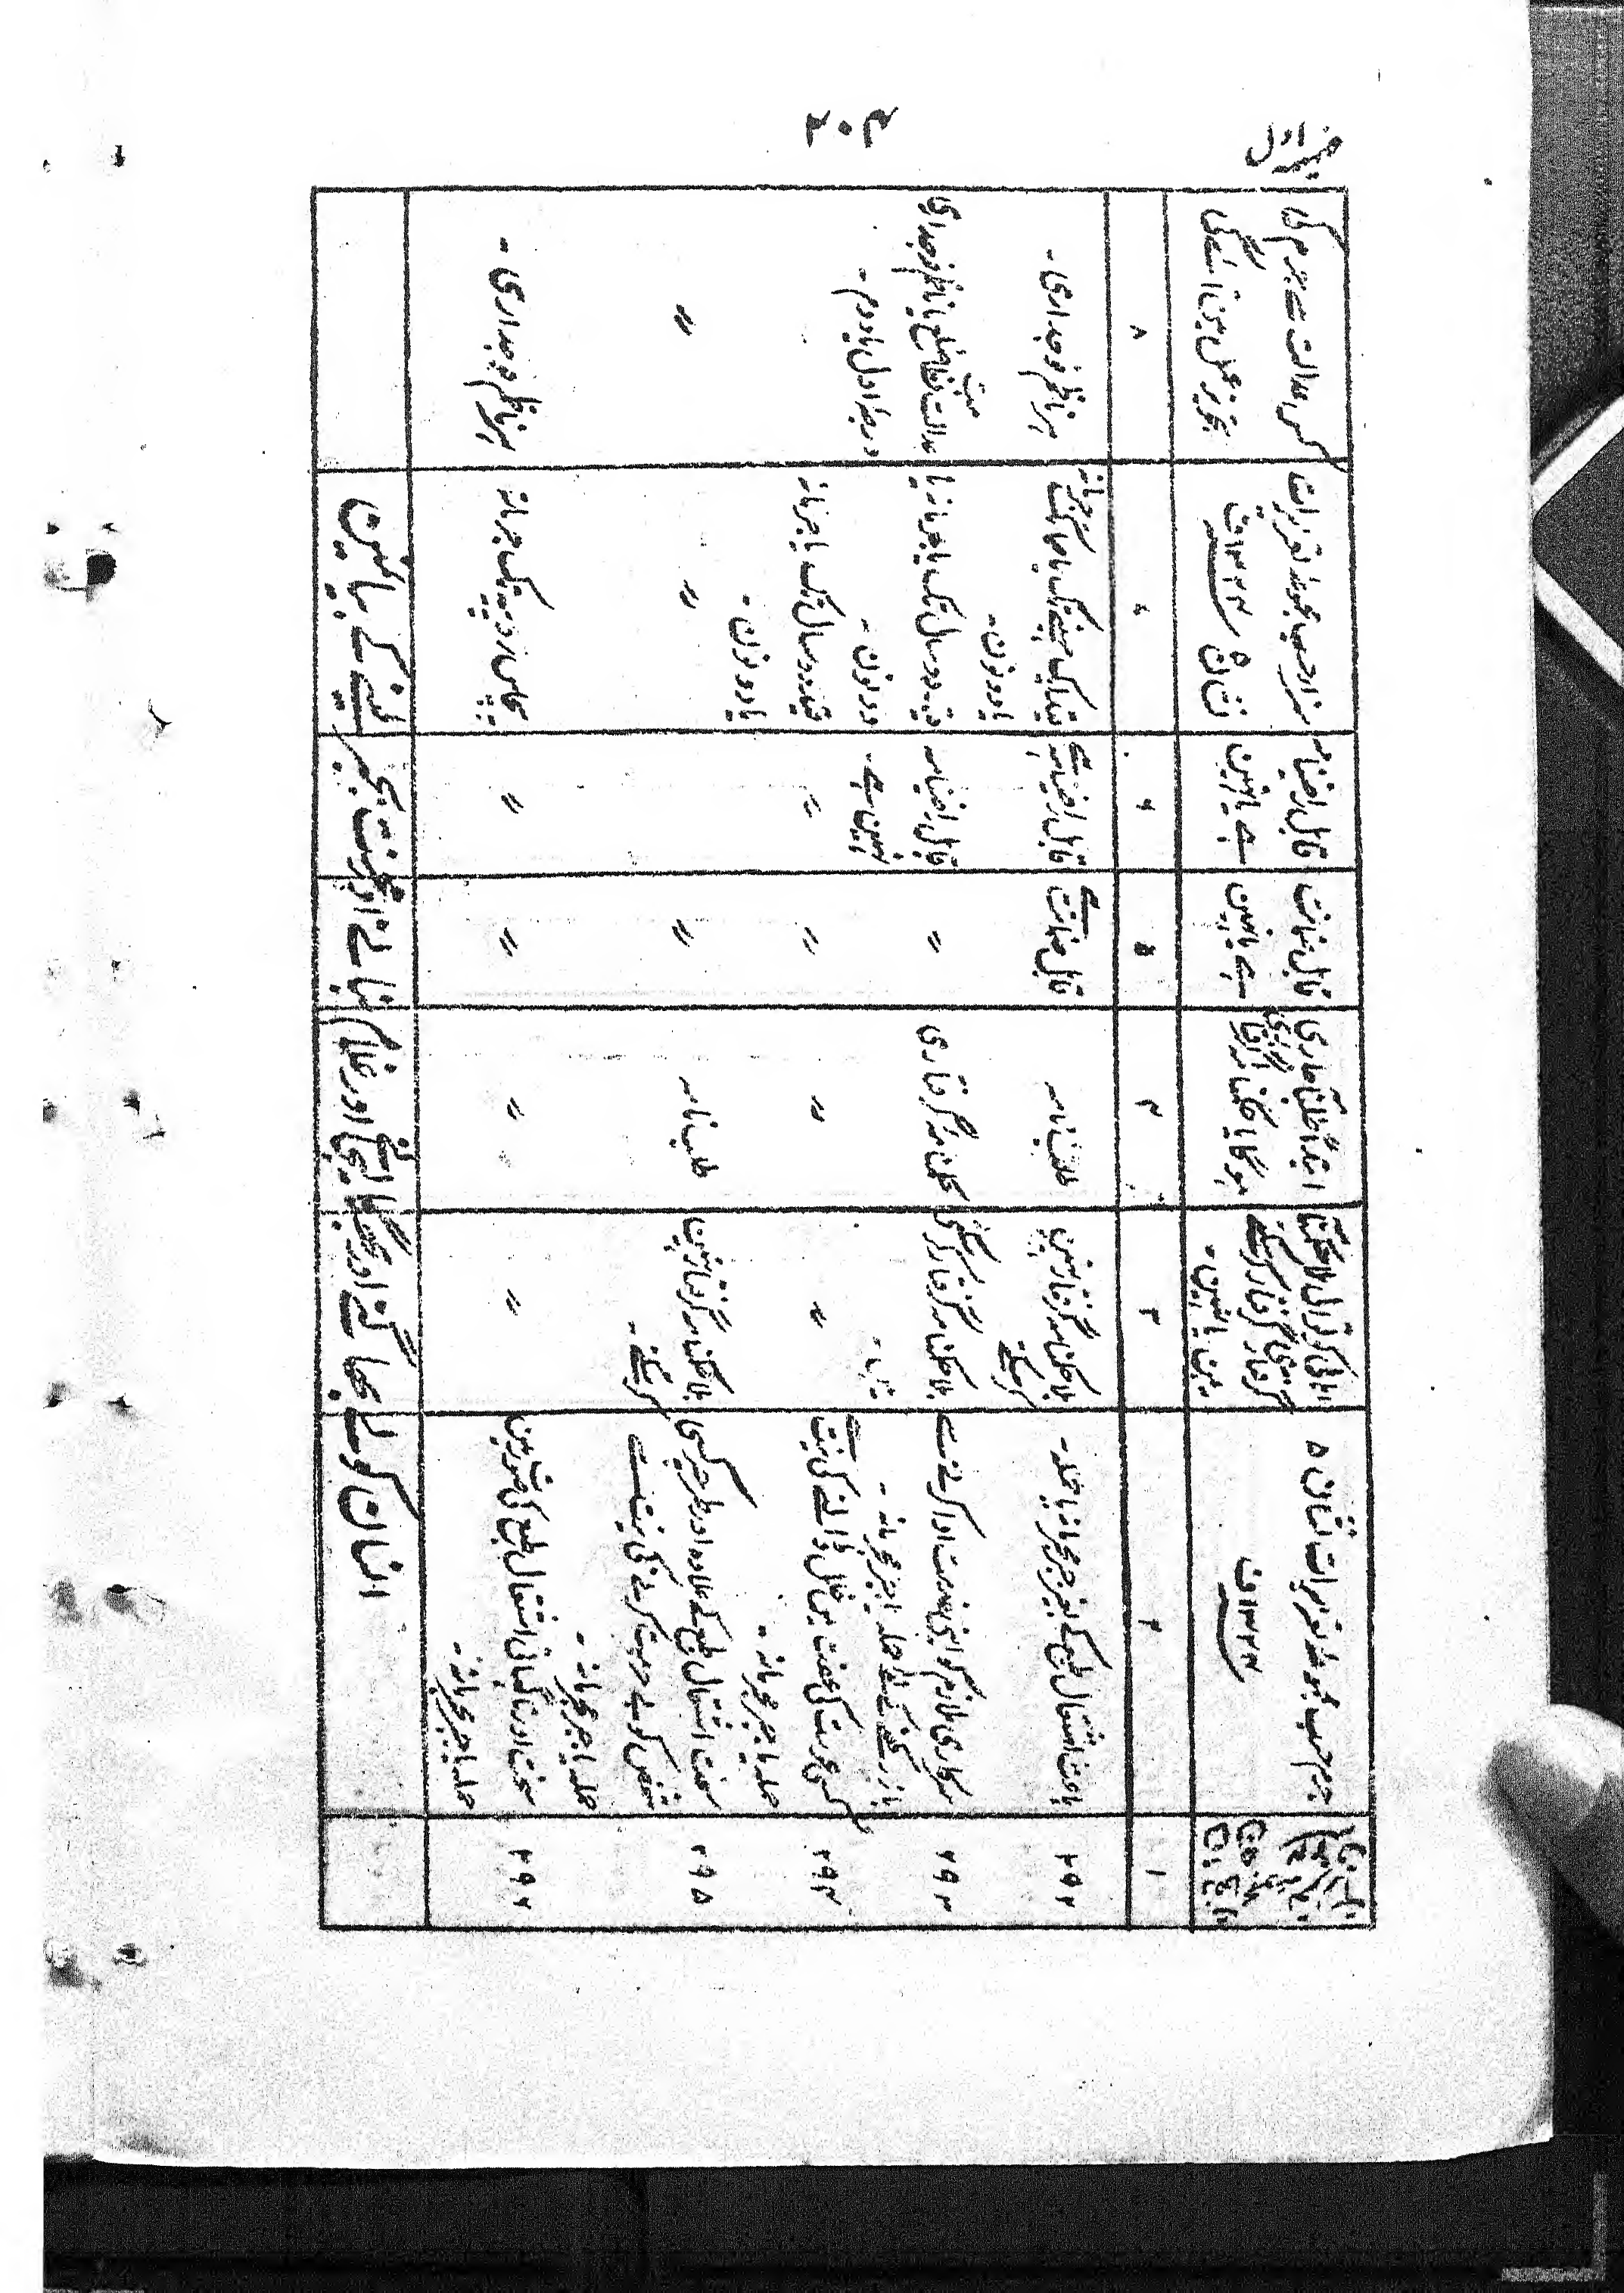 ۴۰۷
کس عدالت سے جرم کی
تجویز عمل مین آئے گی
سزا حسب مجموعہ تعزیرات
نشان ۵ سنہ ۱۳۲۴ ف
قابل راضینامہ
ہے یا نہین
قابل ضمانت
ہے یا نہین
ابتداءً طلبنامہ جاری
ہوگا یا حکمنامہ گرفتاری
اہالی کوتوالی بلا حکمنامہ
گرفتاری گرفتار کرسکتے
ہین یا نہین ۔
جرم حسب مجموعہ تعزیرات نشان ۵
سنہ ۱۳۲۴ ف
۱
۲
۳
۴
۵
۶
۷
۸
۲۹۲
باعث اشتعال طبع کے بغیر جبر مجرمانہ یا حملہ ۔
بلا حکمنامہ گرفتار نہین
کرسکتے
طلبنامہ
قابل ضمانت ہے
قابل راضینامہ ہے
قید ایک مہینے تک یا جرمانہ
یا دونون ۔
ہر ناظم فوجداری ۔
۲۹۳
سرکاری ملازم کو اپنی خدمت ادا کرنے سے
باز رکھنے کے لئے حملہ یا جبر مجرمانہ ۔
بلا حکمنامہ گرفتار کرسکتی
حکمنامہ گرفتاری
〃
قابل راضینامہ
نہین ہے ۔
قید دو سال تک یا جرمانہ یا
دونون ۔
عدالت نظامت ضلع یا ناظم فوجداری
درجہ اول یا دوم ۔
۲۹۴
کسی عورت کی عفت مین خلل ڈالنے کی نیت سے
حملہ یا جبر مجرمانہ ۔
〃
〃
〃
〃
قید دو سال تک یا جرمانہ
یا دونون ۔
۲۹۵
سخت اشتعال طبع کے علاوہ اور طرح پر کسی
شخص کو بے حرمت کرنے کی نیت سے
حملہ یا جبر مجرمانہ ۔
بلا حکمنامہ گرفتار نہین
کرسکتے ۔
طلبنامہ
〃
〃
〃
۲۹۶
سخت اور ناگہانی اشتعال طبع کی صورت مین
حملہ یا جبر مجرمانہ ۔
〃
〃
〃
〃
پچاس روپیہ تک جرمانہ
ہر ناظم فوجداری ۔
انسان کو لے بھاگنے اور بھگا لیجانے اور غلام بنانے اور محنت بجبر لینے کے بیان مین